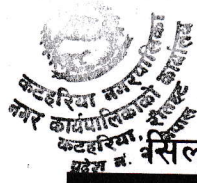 कटहरिया नगरपालिका
नगर कार्यपालिकाको कार्यालय
कटहरिया, रौतहट
प्रदेश नं.
सिल